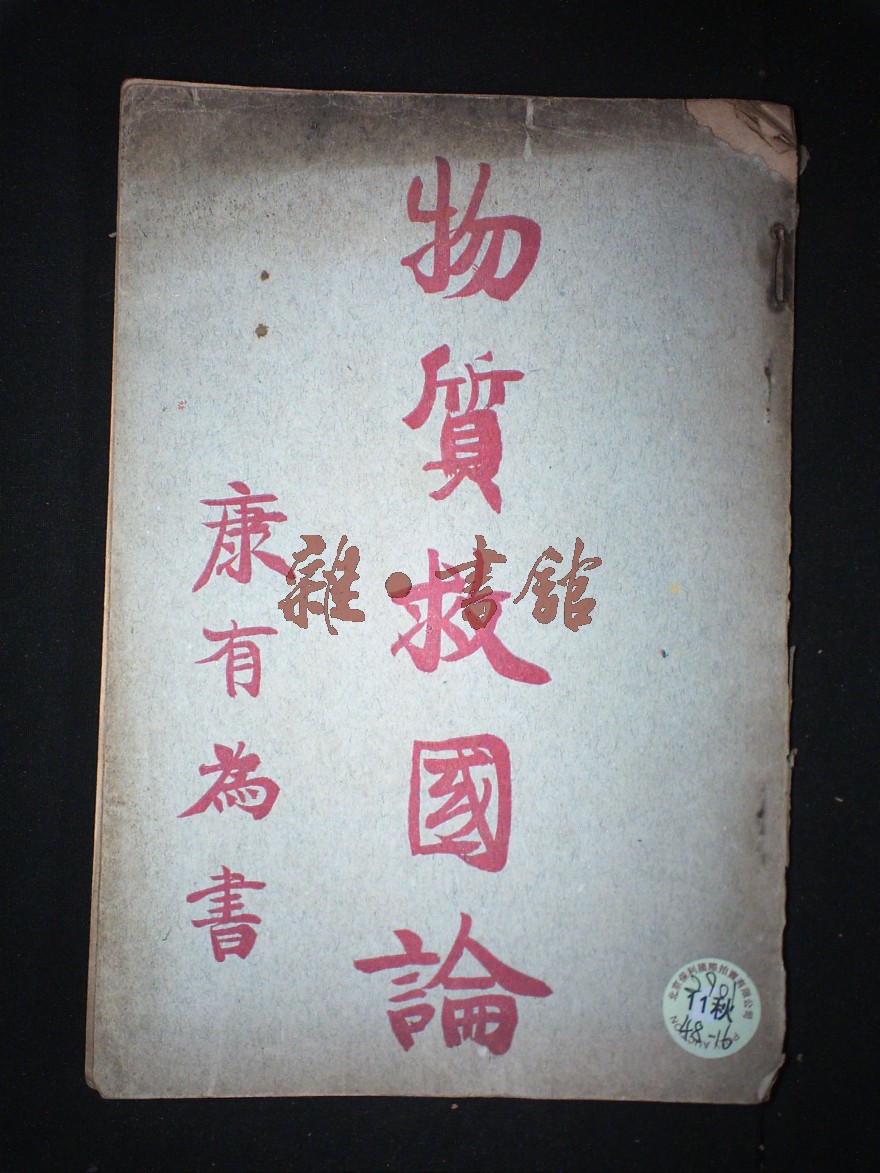 物質救國論
康有為書
雜·書館
北京保利國際拍賣有限公司
11秋
48-16